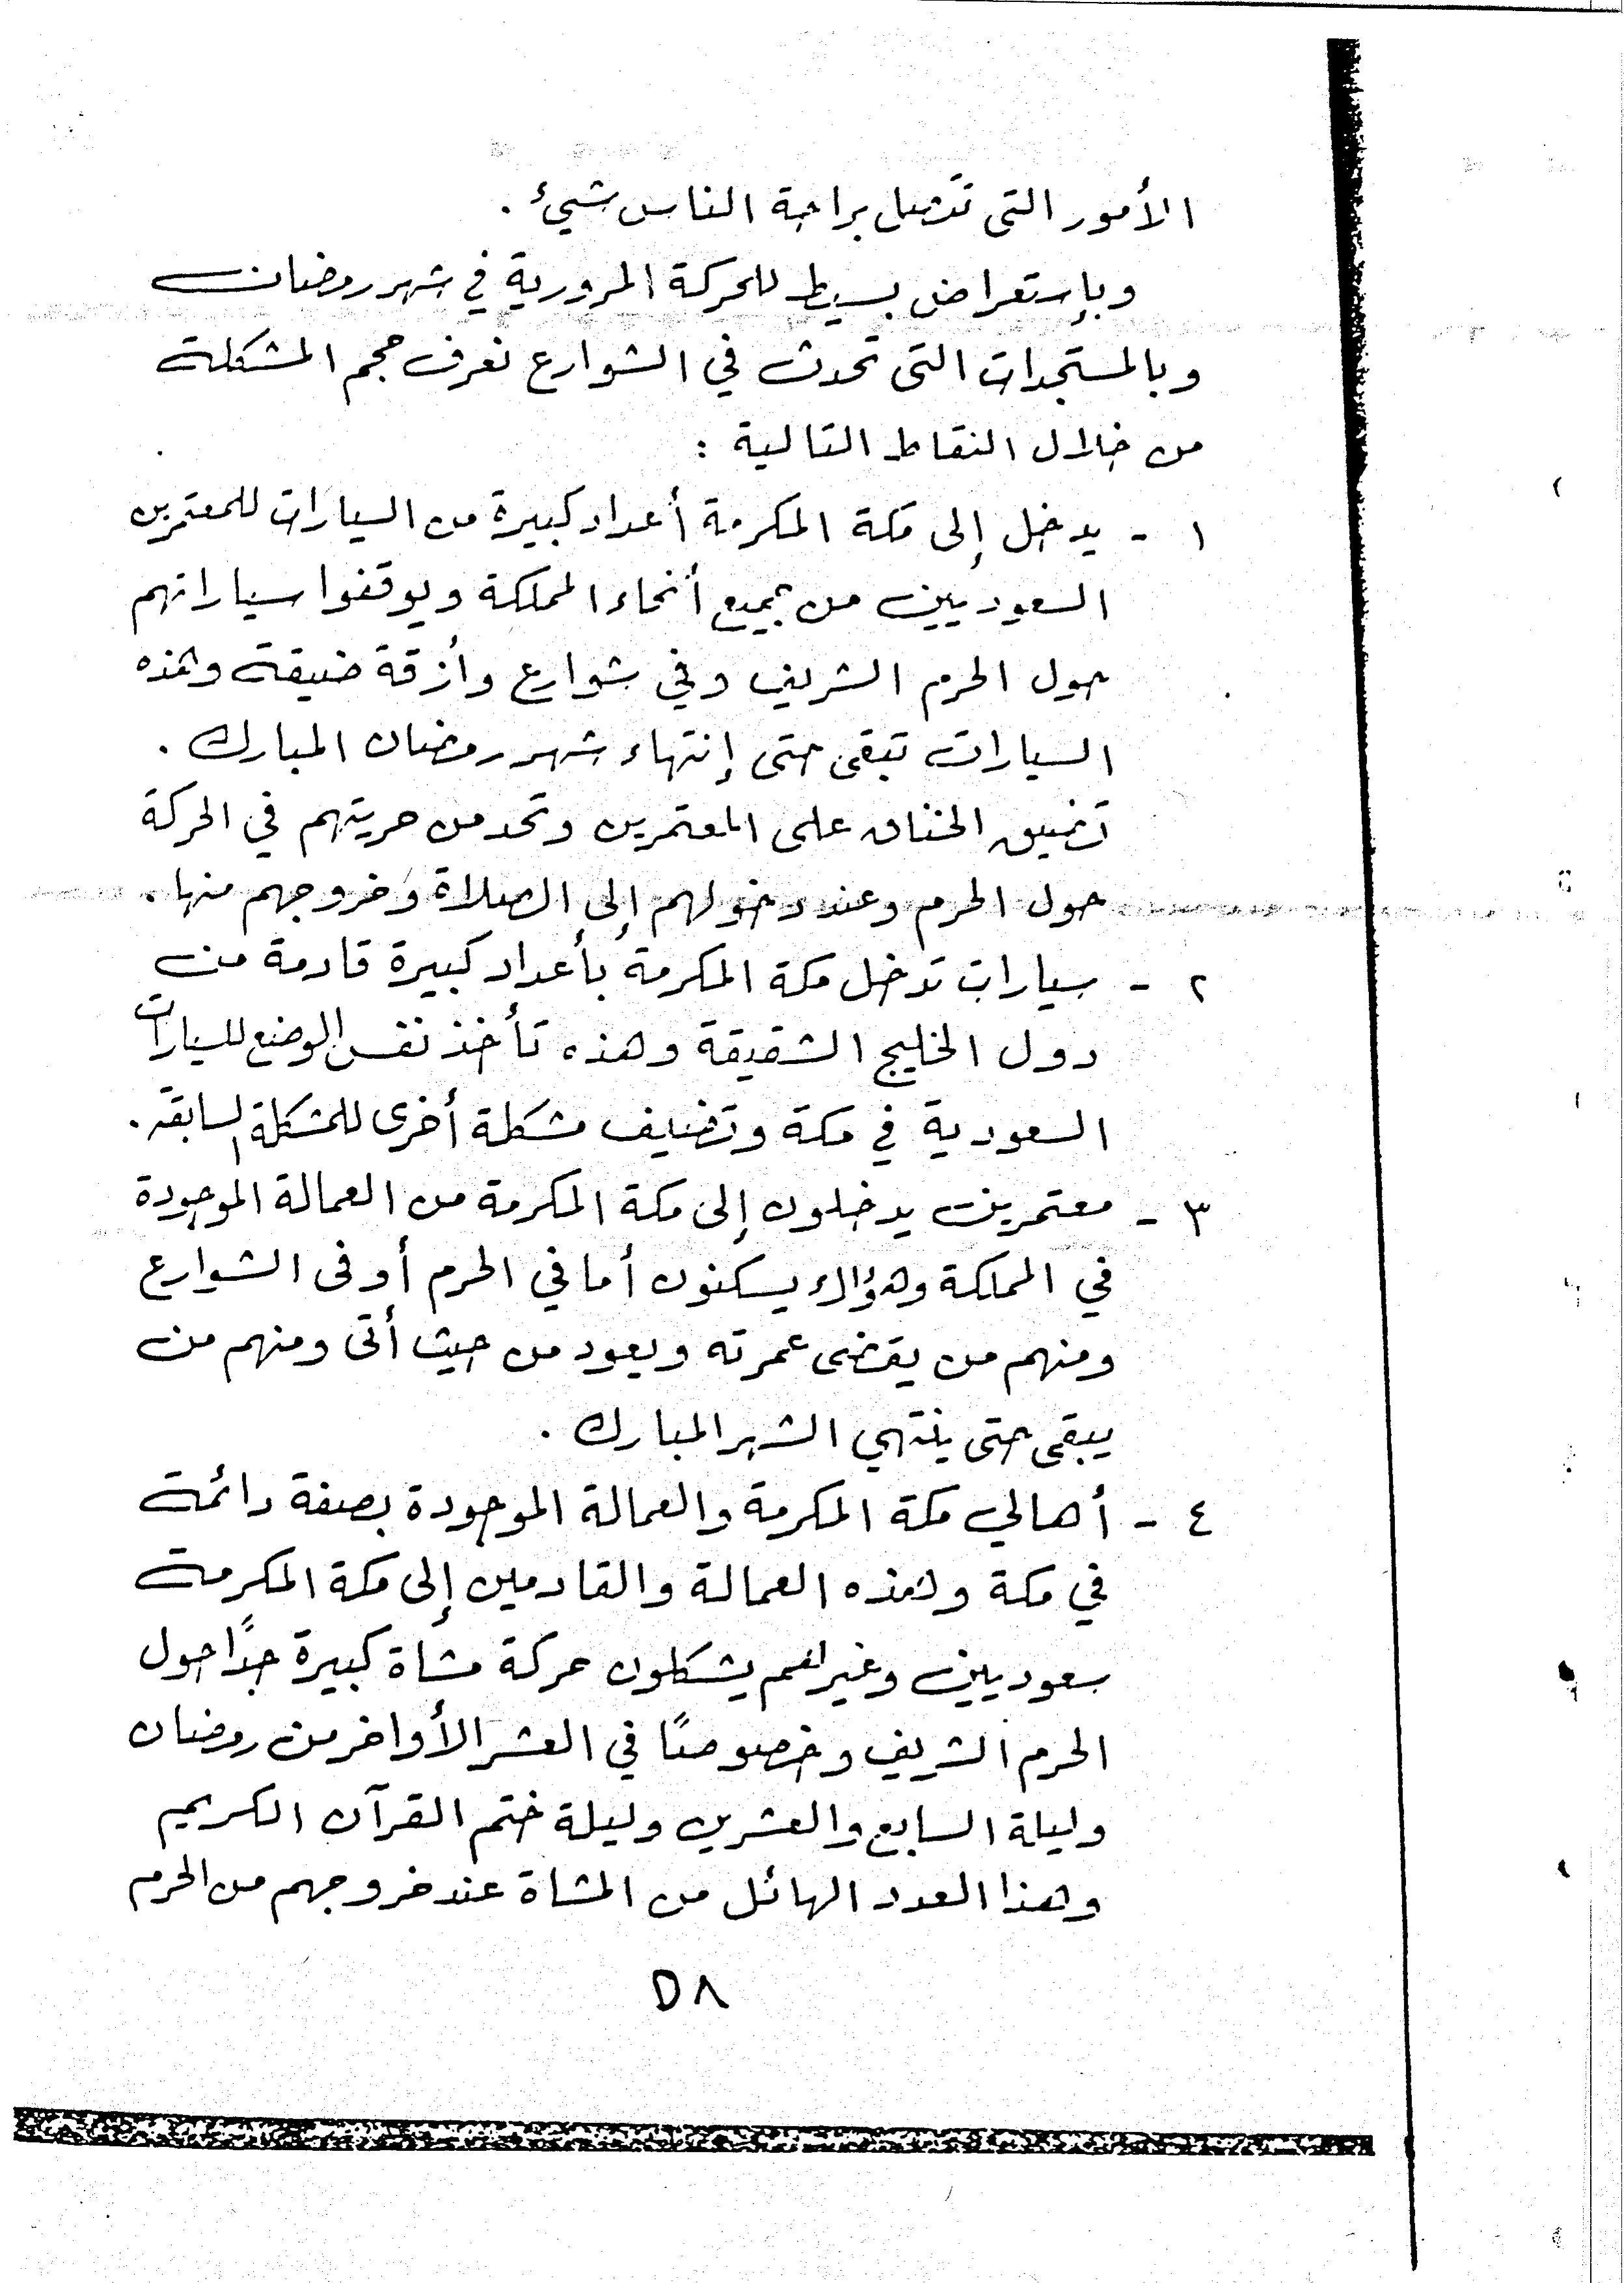 الأمور التى تتصل براحة الناس شيئ .
وبإستعراض بسيط للحركة المرورية في شهر رمضان
وبالمستجدات التى تحدث في الشوارع نعرف حجم المشكلة
من خلال النقاط التالية :
١ - يدخل إلى مكة المكرمة أعداد كبيرة من السيارات للمعتمرين
السعوديين من جميع أنحاء المملكة ويوقفوا سياراتهم
حول الحرم الشريف وفي شوارع وأزقة ضيقة وهذه
السيارات تبقى حتى إنتهاء شهر رمضان المبارك .
تضييق الخناق على المعتمرين وتحد من حريتهم في الحركة
حول الحرم وعند دخولهم إلى الصلاة وخروجهم منها .
٢ - سيارات تدخل مكة المكرمة بأعداد كبيرة قادمة من
دول الخليج الشقيقة وهذه تأخذ نفس الوضع للسيارات
السعودية في مكة وتضيف مشكلة أخرى للمشكلة السابقة .
٣ - معتمرين يدخلون إلى مكة المكرمة من العمالة الموجودة
في المملكة وهؤلاء يسكنون أما في الحرم أو فى الشوارع
ومنهم من يقضى عمرته ويعود من حيث أتى ومنهم من
يبقى حتى ينتهي الشهر المبارك .
٤ - أهالي مكة المكرمة والعمالة الموجودة بصفة دائمة
في مكة وهذه العمالة والقادمين إلى مكة المكرمة
سعوديين وغيرهم يشكلون حركة مشاة كبيرة جدًا حول
الحرم الشريف وخصوصًا في العشر الأواخر من رمضان
وليلة السابع والعشرين وليلة ختم القرآن الكريم
وهذا العدد الهائل من المشاة عند خروجهم من الحرم
٥٨